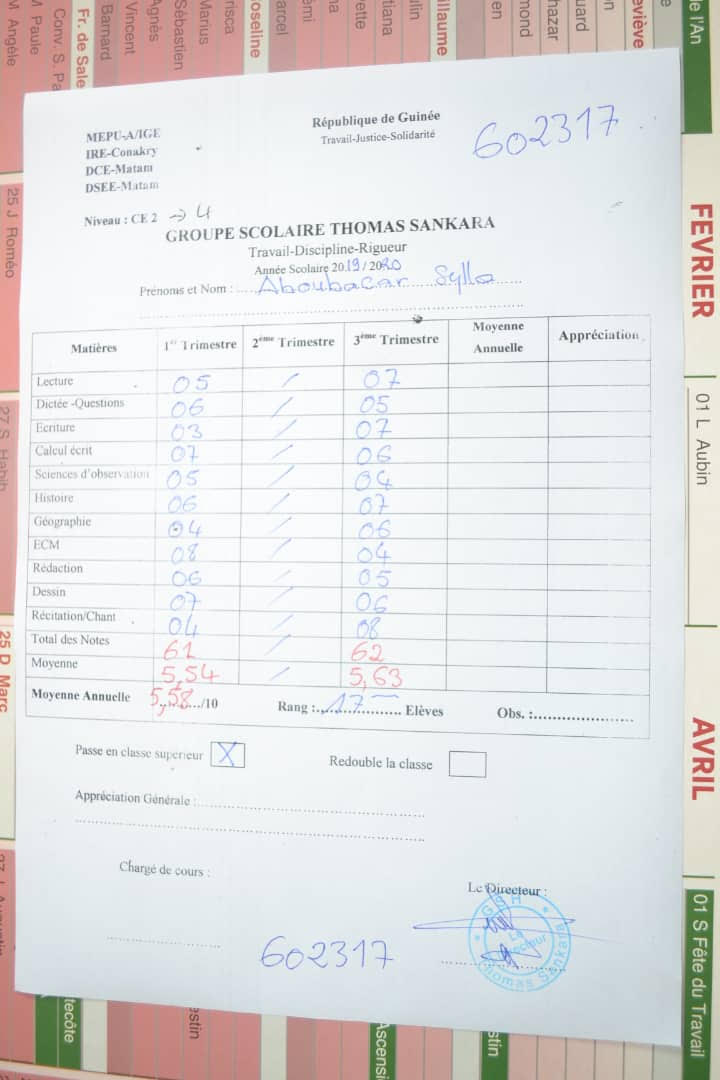 MEPU-A/IGE
IRE-Conakry
DCE-Matam
DSEE-Matam
République de Guinée
Travail-Justice-Solidarité
602317
Niveau : CE 2 → 4
GROUPE SCOLAIRE THOMAS SANKARA
Travail-Discipline-Rigueur
Année Scolaire 2019/2020
Prénoms et Nom : Aboubacar Sylla
Matières 1er Trimestre 2ème Trimestre 3ème Trimestre Moyenne Annuelle Appréciation
Lecture 05 / 07
Dictée -Questions 06 / 05
Ecriture 03 / 07
Calcul écrit 07 / 06
Sciences d'observation 05 / 04
Histoire 06 / 07
Géographie 04 / 06
ECM 08 / 04
Rédaction 06 / 05
Dessin 07 / 06
Récitation/Chant 04 / 08
Total des Notes 61 62
Moyenne 5,54 / 5,63
Moyenne Annuelle 5,58/10 Rang : 17 Elèves Obs. :
Passe en classe superieur X Redouble la classe
Appréciation Générale :
Chargé de cours :
Le Directeur :
Thomas Sankara
602317
de l'An
FEVRIER
01 L Aubin
AVRIL
01 S Fête du Travail
M Angèle
M Paule
Conv. S. Pa
Fr. de Sale
Barnard
Vincent
Agnès
Sébastien
Marius
risca
Roseline
arcel
25 J Roméo
27 S Habib
25 D Marc